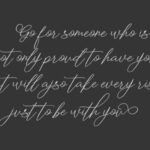 Go for someone who is
not only proud to have yo
t will also take every ri
just to be with you